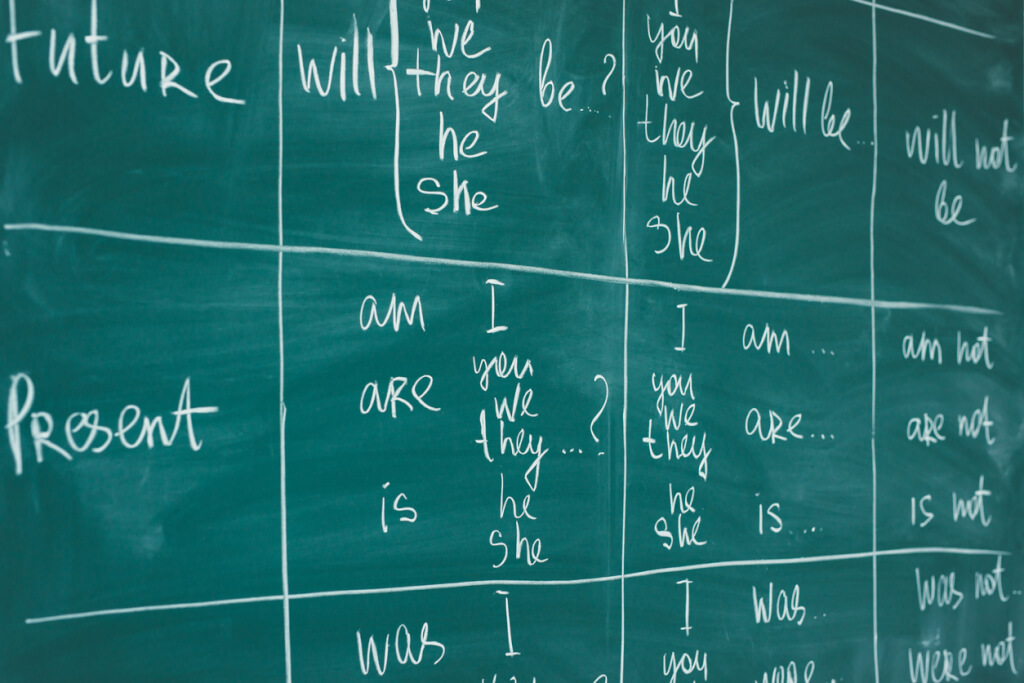 Future
will
we
they
he
she
be...?
I
you
we
they
he
she
will be...
will not
be
Present
am I
are you
we
they...?
is he
she
I am ...
you
we
they
are...
he
she
is....
am not
are not
is not
was I
I
you
was..
was not..
were not